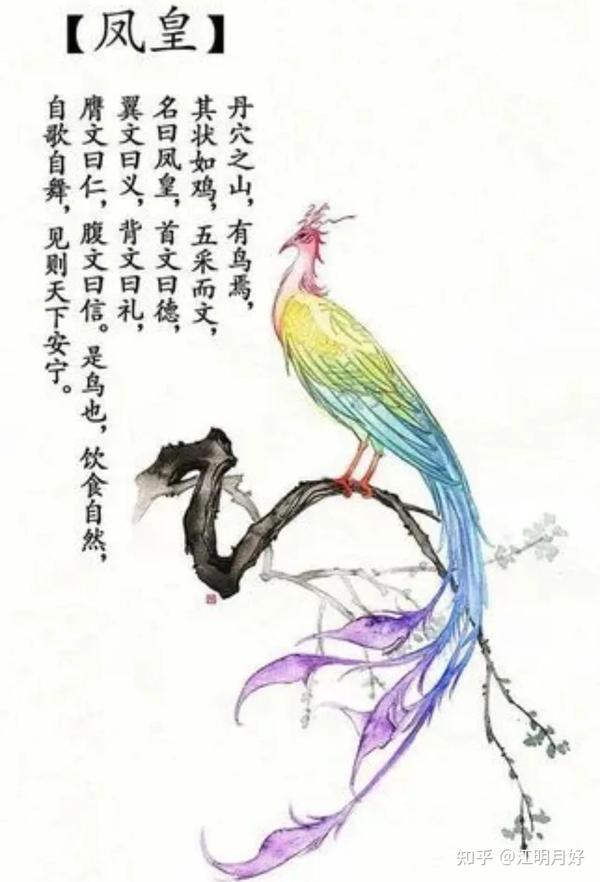 【凤皇】
丹穴之山，有鸟焉，
其状如鸡，五采而文，
名曰凤皇，首文曰德，
翼文曰义，背文曰礼，
膺文曰仁，腹文曰信。是鸟也，饮食自然，
自歌自舞，见则天下安宁。
知乎 @江明月好